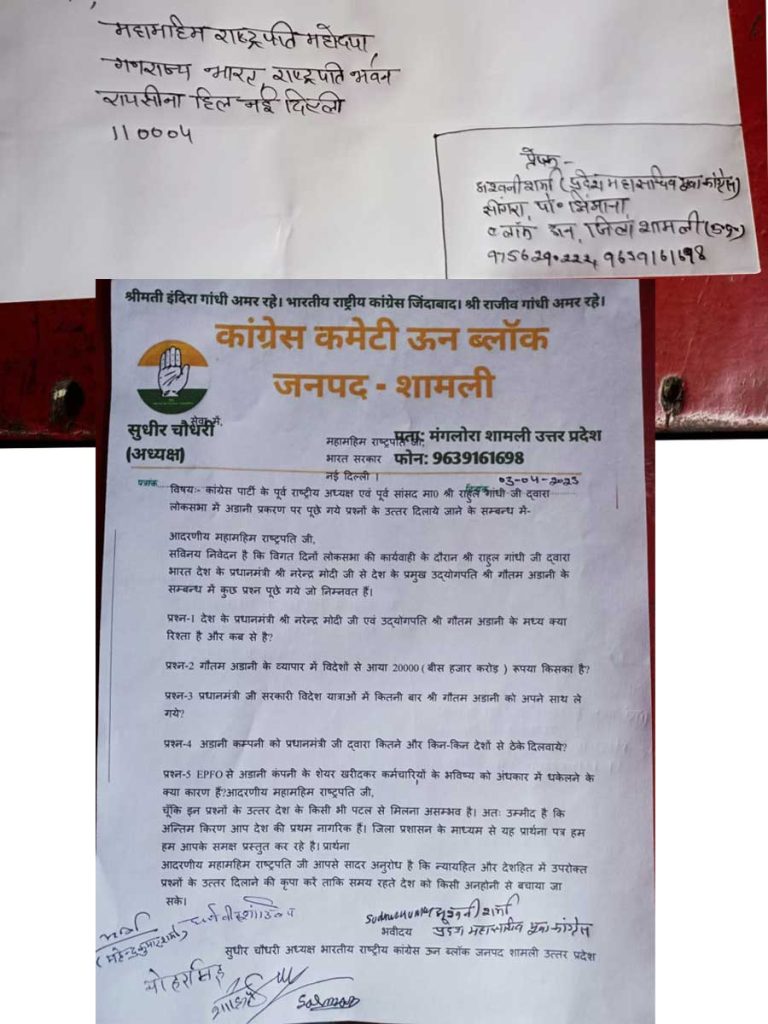 महामहिम राष्ट्रपति महोदया,
गणराज्य भारत, राष्ट्रपति भवन
रायसीना हिल नई दिल्ली
110004
प्रेषक -
अश्वनी शर्मा (प्रदेश महासचिव युवा कांग्रेस)
सींगरा, पो० झिंझाना,
ब्लॉक ऊन, जिला शामली (उ०प्र०)
9756290222, 9639161698
श्रीमती इंदिरा गांधी अमर रहे। भारतीय राष्ट्रीय कांग्रेस जिंदाबाद। श्री राजीव गांधी अमर रहे।
कांग्रेस कमेटी ऊन ब्लॉक
जनपद - शामली
सेवा में,
सुधीर चौधरी
(अध्यक्ष)
महामहिम राष्ट्रपति जी,
भारत सरकार
नई दिल्ली ।
पता: मंगलोरा शामली उत्तर प्रदेश
फोन: 9639161698
पत्रांक
दिनांक
03-04-2023
विषय:- कांग्रेस पार्टी के पूर्व राष्ट्रीय अध्यक्ष एवं पूर्व सांसद मा0 श्री राहुल गांधी जी द्वारा
लोकसभा में अडानी प्रकरण पर पूछे गये प्रश्नों के उत्तर दिलाये जाने के सम्बन्ध में-
आदरणीय महामहिम राष्ट्रपति जी,
सविनय निवेदन है कि विगत दिनों लोकसभा की कार्यवाही के दौरान श्री राहुल गांधी जी द्वारा
भारत देश के प्रधानमंत्री श्री नरेन्द्र मोदी जी से देश के प्रमुख उद्योगपति श्री गौतम अडानी के
सम्बन्ध में कुछ प्रश्न पूछे गये जो निम्नवत हैं।
प्रश्न-1 देश के प्रधानमंत्री श्री नरेन्द्र मोदी जी एवं उद्योगपति श्री गौतम अडानी के मध्य क्या
रिश्ता है और कब से है?
प्रश्न-2 गौतम अडानी के व्यापार में विदेशों से आया 20000 ( बीस हजार करोड़ ) रूपया किसका है?
प्रश्न-3 प्रधानमंत्री जी सरकारी विदेश यात्राओं में कितनी बार श्री गौतम अडानी को अपने साथ ले
गये?
प्रश्न-4 अडानी कम्पनी को प्रधानमंत्री जी द्वारा कितने और किन-किन देशों से ठेके दिलवाये?
प्रश्न-5 EPFO से अडानी कंपनी के शेयर खरीदकर कर्मचारियों के भविष्य को अंधकार में धकेलने के
क्या कारण हैं?आदरणीय महामहिम राष्ट्रपति जी,
चूँकि इन प्रश्नों के उत्तर देश के किसी भी पटल से मिलना असम्भव है। अतः उम्मीद है कि
अन्तिम किरण आप देश की प्रथम नागरिक हैं। जिला प्रशासन के माध्यम से यह प्रार्थना पत्र हम
हम आपके समक्ष प्रस्तुत कर रहे है। प्रार्थना
आदरणीय महामहिम राष्ट्रपति जी आपसे सादर अनुरोध है कि न्यायहित और देशहित में उपरोक्त
प्रश्नों के उत्तर दिलाने की कृपा करे ताकि समय रहते देश को किसी अनहोनी से बचाया जा
सके।
अश्वनी शर्मा
भवदीय प्रदेश महासचिव युवा कांग्रेस
(महेन्द्र कुमार शर्मा)
सुधीर चौधरी अध्यक्ष भारतीय राष्ट्रीय कांग्रेस ऊन ब्लॉक जनपद शामली उत्तर प्रदेश